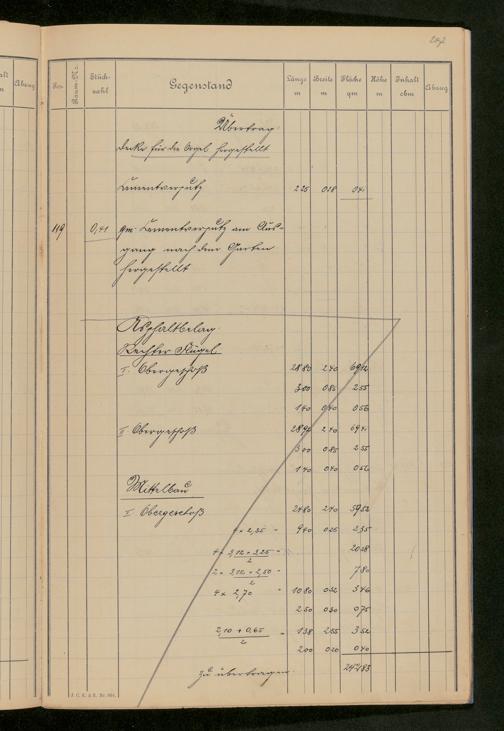 Pos. Raum-Nr. Stück-zahl Gegenstand Länge m Breite m Fläche qm Höhe m Inhalt cbm Abzug
Übertrag
decke für die Orgel hergestellt
Cementverputz 2 25 0 18 0 41
119 0,41 qm Cementverputz am Aus-
gang nach dem Garten
hergestellt
Asphaltbelag
Rechter Flügel
I. Obergeschoß 28 80 2 40 69 12
3 00 0 85 2 55
1 40 0 40 0 56
II Obergeschoß 28 90 2 40
3 00 0 85 2 55
1 40 0 40 0 56
Mittelbau
I. Obergeschoß 24 80 2 40 59 52
9 40 0 25 2 35
2
2
7 80
4 × 2,70 10 80 0 32 3 46
2 50 0 30 0 75
2,10 + 0,65 1 38 2 55 3 52
2
2 00 0 20 0 40
zu übertragen
J. C. K. & E. Nr. 864.